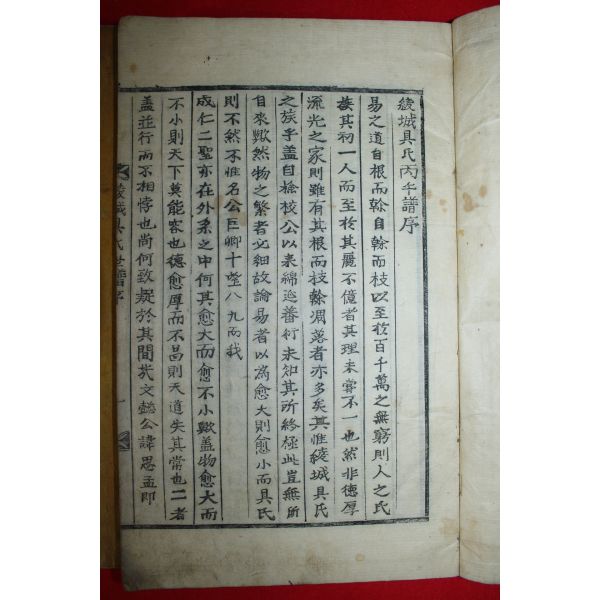 綾城具氏丙午譜序
易之道自根而榦自榦而枝以至於百千萬之無窮則人之氏
族其初一人而至於其麗不億者其理未嘗不一也然非德厚
流光之家則雖有其根而枝榦凋落者亦多矣其惟綾城具氏
之族乎盖自檢校公以来綿延蕃衍未知其所終極此豈無所
自來歟然物之繁者必細故論易者以為愈大則愈小而具氏
則不然不惟名公巨卿十墜八九而我
成仁二聖亦在外系之中何其愈大而愈不小歟盖物愈大而
不小則天下莫能容也德愈厚而不昌則天道失其常也二者
盖並行而不相悖也尚何致疑於其間㢤文懿公諱思孟即
綾城具氏世譜序
一